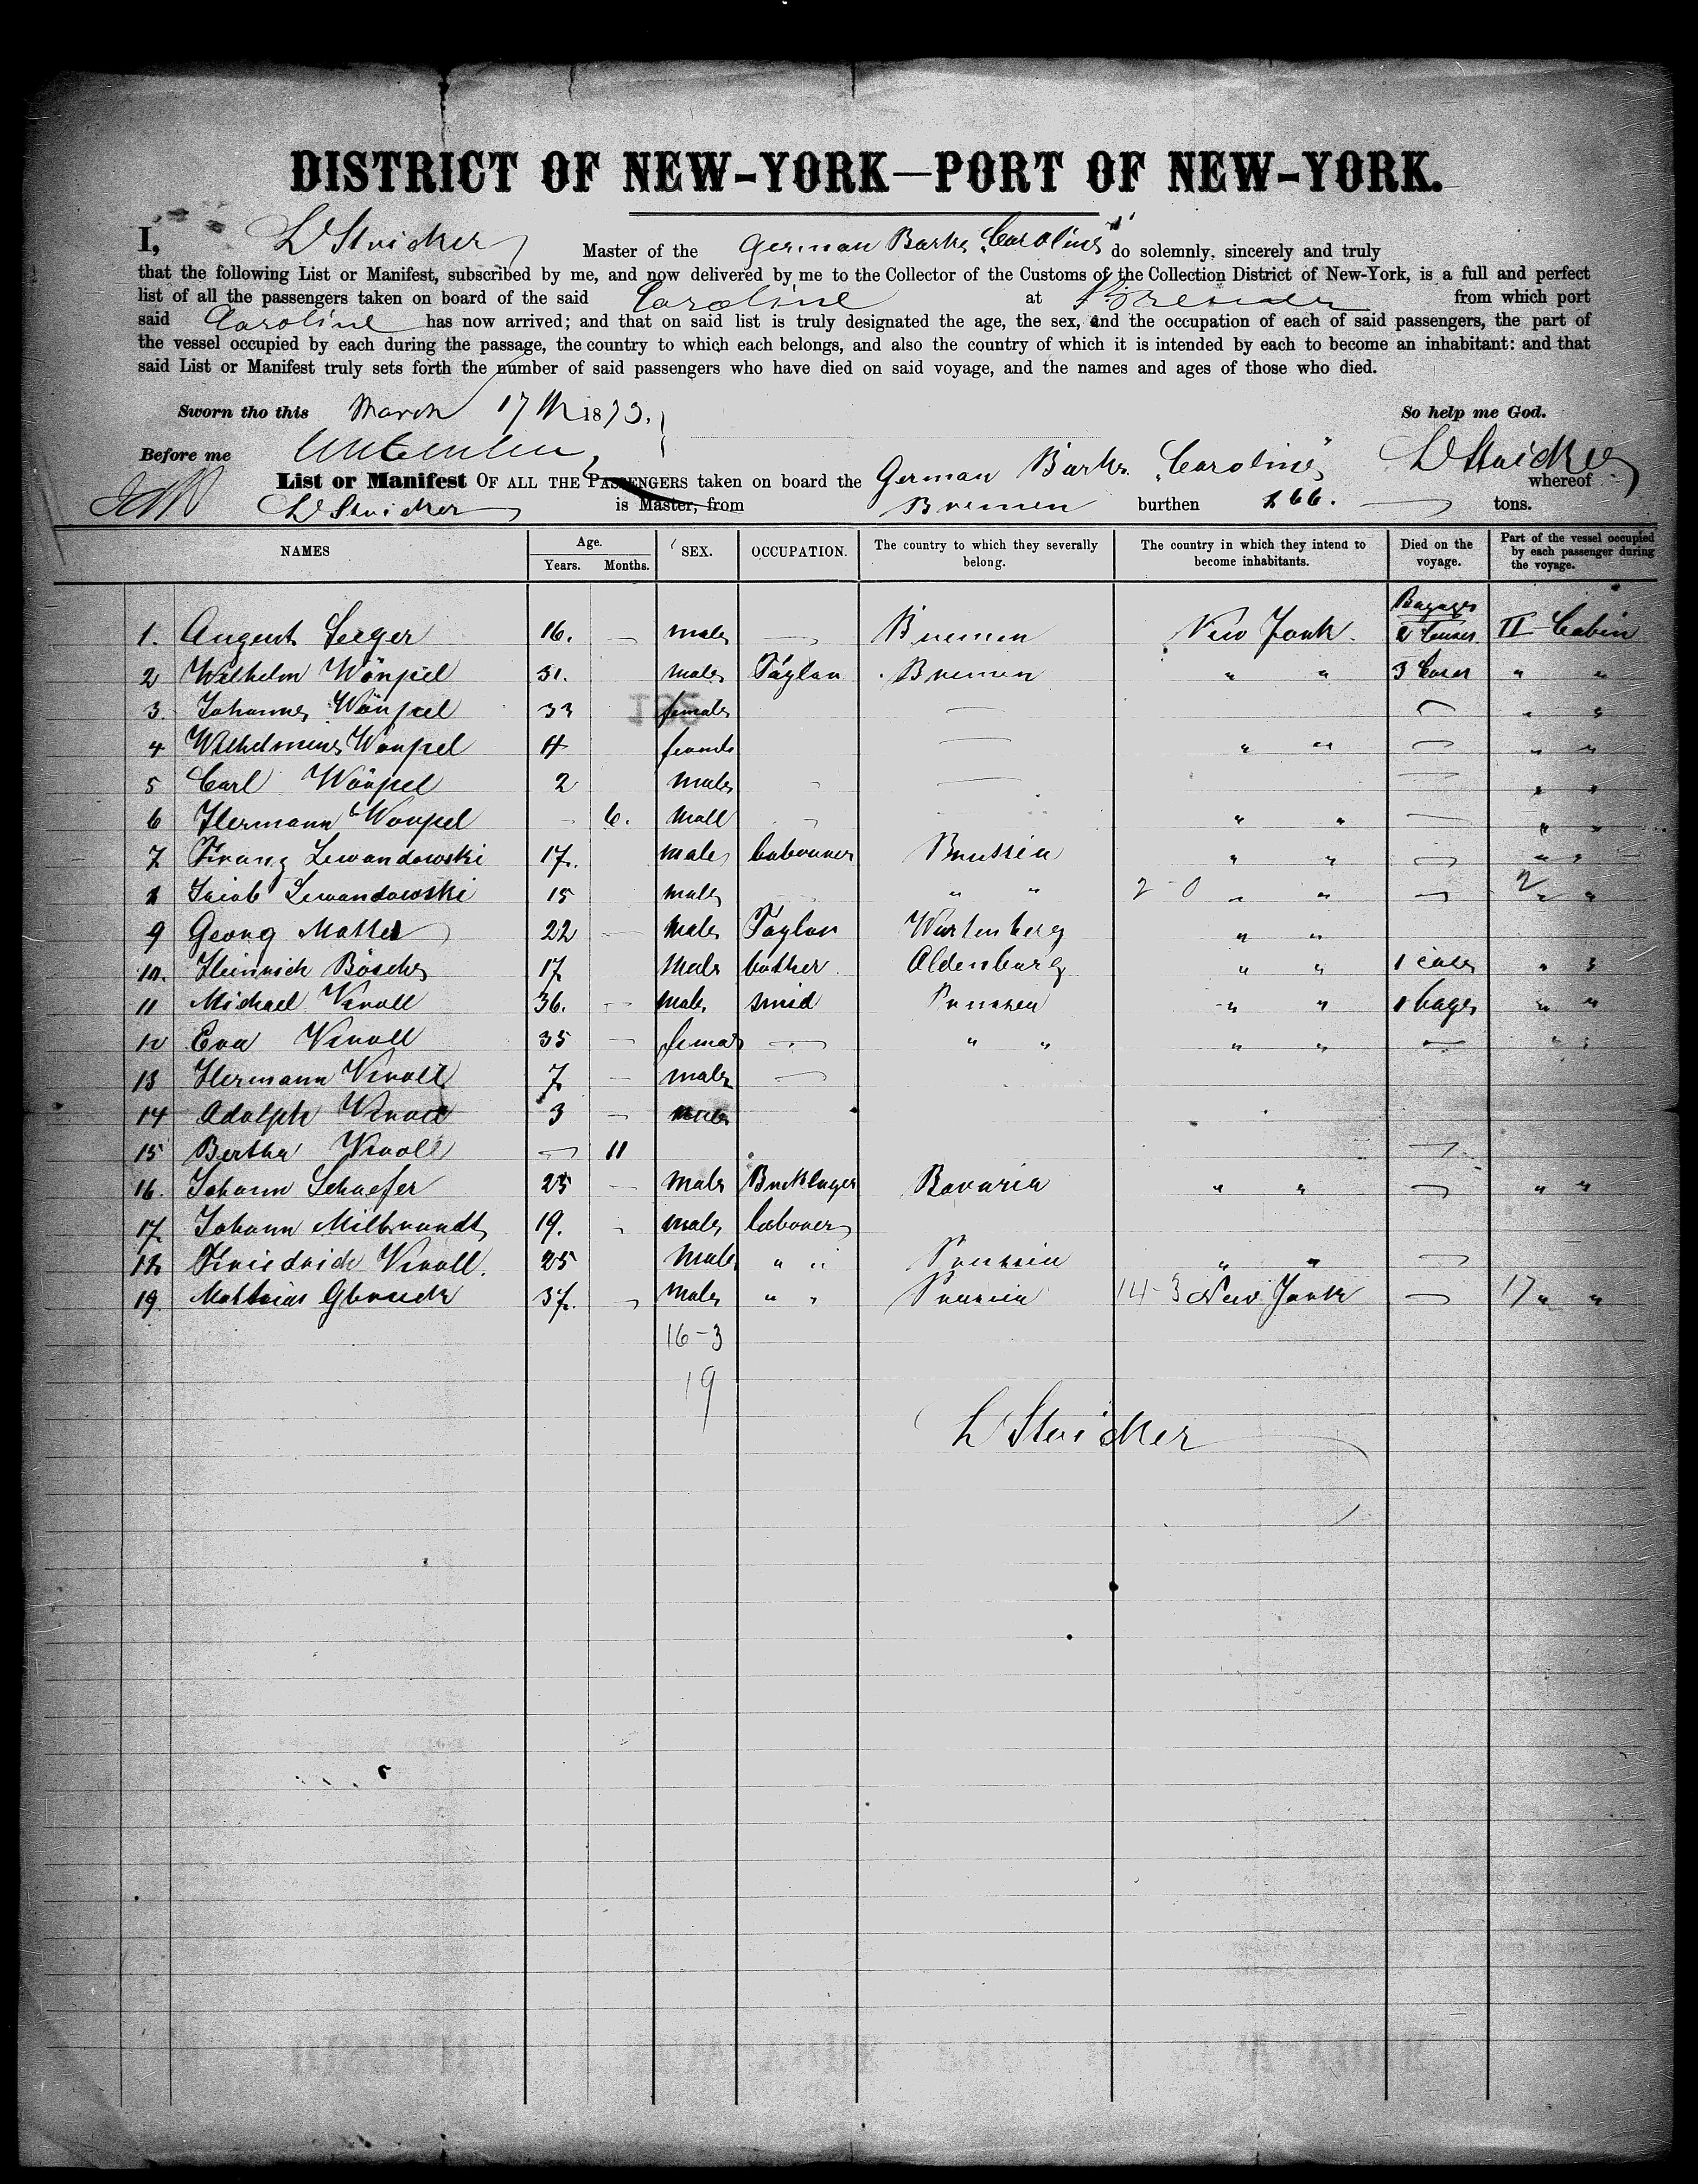 DISTRICT OF NEW-YORK—PORT OF NEW-YORK.
I, D Stricker Master of the German Barke "Caroline" do solemnly, sincerely and truly
that the following List or Manifest, subscribed by me, and now delivered by me to the Collector of the Customs of the Collection District of New-York, is a full and perfect
list of all the passengers taken on board of the said Caroline at Bremen from which port
said Caroline has now arrived; and that on said list is truly designated the age, the sex, and the occupation of each of said passengers, the part of
the vessel occupied by each during the passage, the country to which each belongs, and also the country of which it is intended by each to become an inhabitant: and that
said List or Manifest truly sets forth the number of said passengers who have died on said voyage, and the names and ages of those who died.
Sworn tho this March 17th 1873. So help me God.
Before me D Stricker
List or Manifest OF ALL THE PASSENGERS taken on board the German Barke "Caroline" whereof
D Stricker is Master, from Bremen burthen 166. tons.
NAMES Age. Years. Months. SEX. OCCUPATION. The country to which they severally belong. The country in which they intend to become inhabitants. Died on the voyage. Part of the vessel occupied by each passenger during the voyage.
Bagage
1. August Seeger 16. — male — Bremen New York. 2 II Cabin
2 Wilhelm Wönpel 31. male Taylor Bremen " " 3 Cases " "
3. Johanne Wönpel 33 female — — " "
4 Wilhelmine Wönpel 4 female — " " — " "
5 Carl Wönpel 2 male — — " "
6 Hermann Wönpel — 6. male " " — " "
7 Franz Lewandowski 17. male labourer Prussia " " — " "
8 Jacob Lewandowski 15 male " " 2-0 " " — 2 " "
9 Georg Matter 22 — male Taylor Würtenberg " "
10. Heinrich Bösche 17 male butcher Oldenburg " " 1 case " "
11 Michael Kroll 36. — male smid Prussia " " 1 bage " "
12 Eva Kroll 35 — female — " " " " — " "
13 Hermann Kroll 7 — male —
14 Adolph Kroll 3 — male
15 Bertha Kroll — 11 —
16. Johann Schaefer 25 — male Bricklayer Bavaria " " — " "
17. Johann Milbrandt 19. male labourer
18 Friedrich Kroll. 25 male " " Prussia " " —
19. Mathias 37. — male " " Prussia 14-3 New York — 17 " "
16-3
19
D Stricker